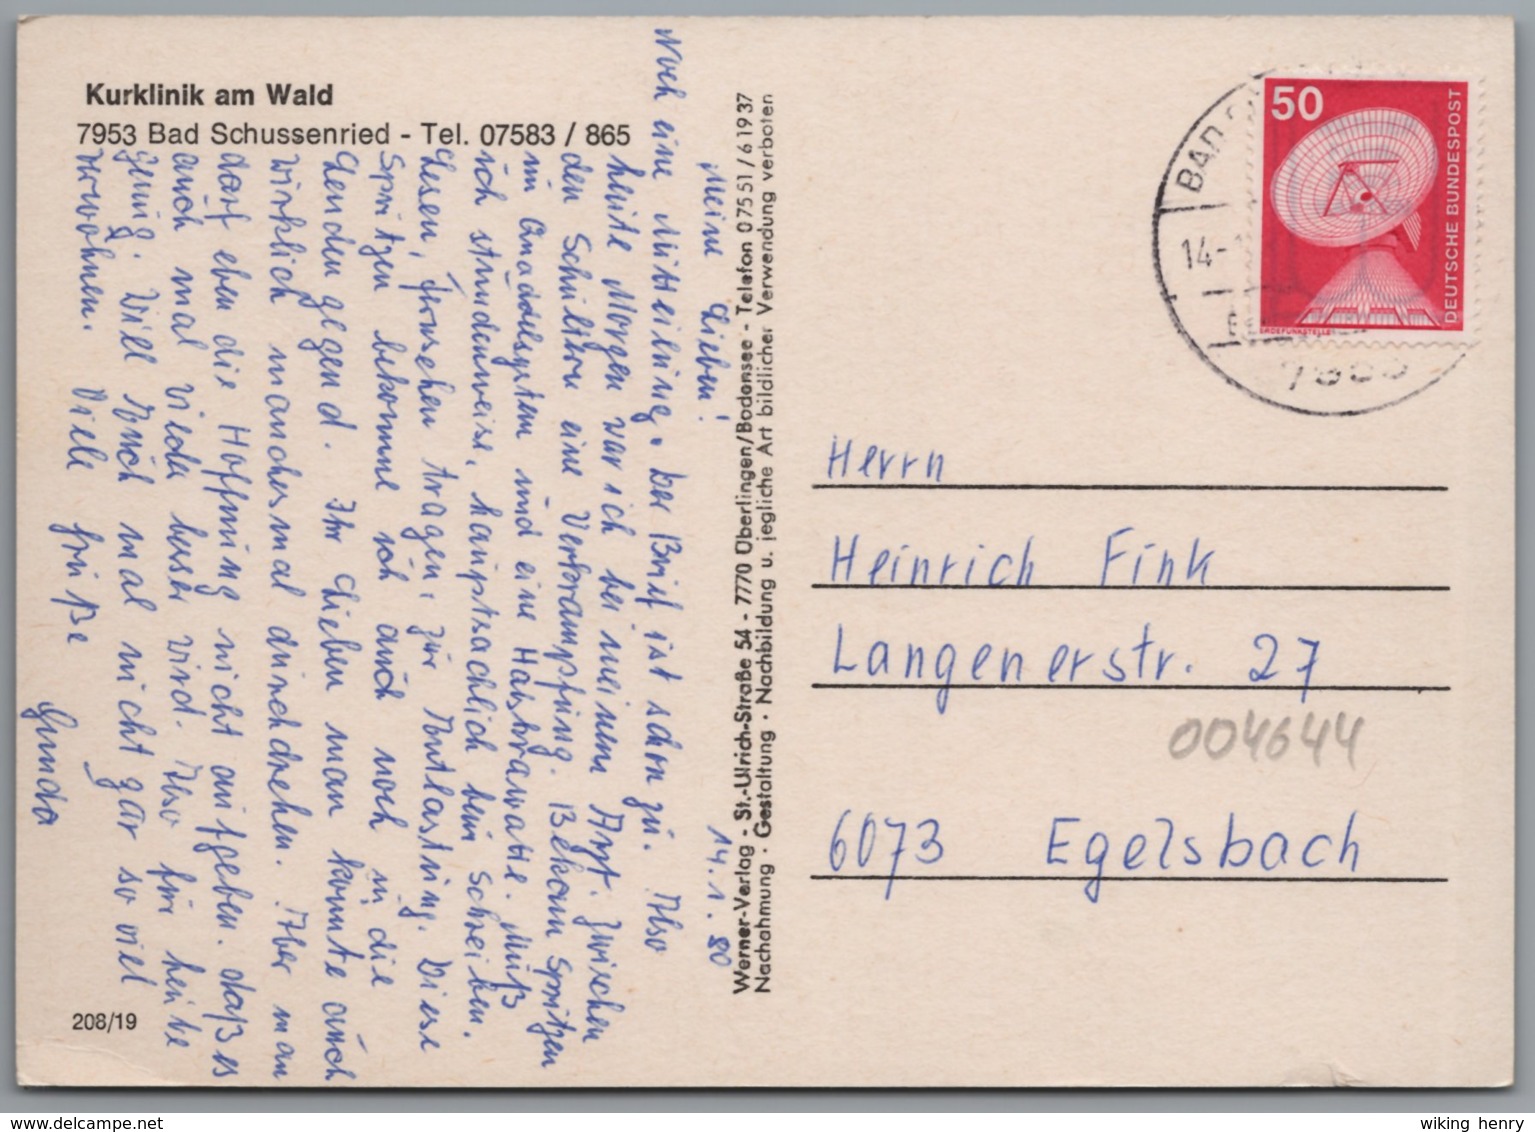 Kurklinik am Wald
7953 Bad Schussenried - Tel. 07583 / 865
14.1.80
Meine Lieben!
Noch eine Mitteilung. Der Brief ist schon zu. Also
heute Morgen war ich bei meinem Arzt. Zwischen
den Schultern eine Verkrampfung. Bekam Spritzen
ins und eine Halskrawatte. Muß
ich stundenweise, hauptsächlich beim Schreiben,
Lesen, Fernsehen tragen, zur Entlastung. Diese
Spritzen bekomme ich auch noch in die
Lendengegend. Ihr Lieben man könnte auch
wirklich manchesmal durchdrehen. Aber man
darf eben die Hoffnung nicht aufgeben. daß es
auch mal wieder besser wird. Also für heute
genug. Will Euch mal nicht gar so viel
verwöhnen. Viele Grüße
Gunda
208/19
Werner-Verlag - St.-Ulrich-Straße 54 - 7770 Überlingen/Bodensee - Telefon 07551/61937
Nachahmung · Gestaltung · Nachbildung u. jegliche Art bildlicher Verwendung verboten
50
DEUTSCHE BUNDESPOST
ERDEFUNKSTELLE
BAD
14.-
Herrn
Heinrich Fink
Langenerstr. 27
004644
6073 Egelsbach
wiking henry